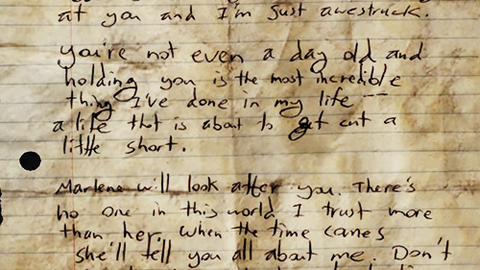 at you and I'm just awestruck.
you're not even a day old and
holding you is the most incredible
thing I've done in my life --
a life that is about to get cut a
little short.
Marlene will look after you. There's
no one in this world I trust more
than her. When the time comes
she'll tell you all about me. Don't